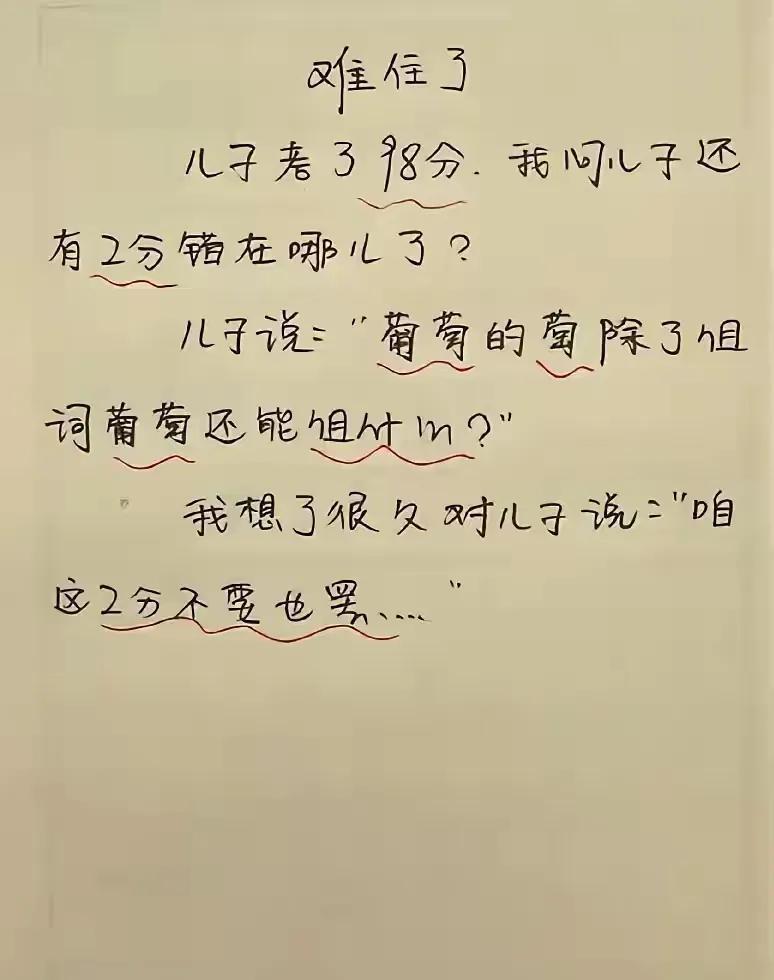 难住了
儿子考了98分.我问儿子还
有2分错在哪儿了?
儿子说:"葡萄的萄除了组
词葡萄还能组什么?"
我想了很久对儿子说:"咱
这2分不要也罢....."